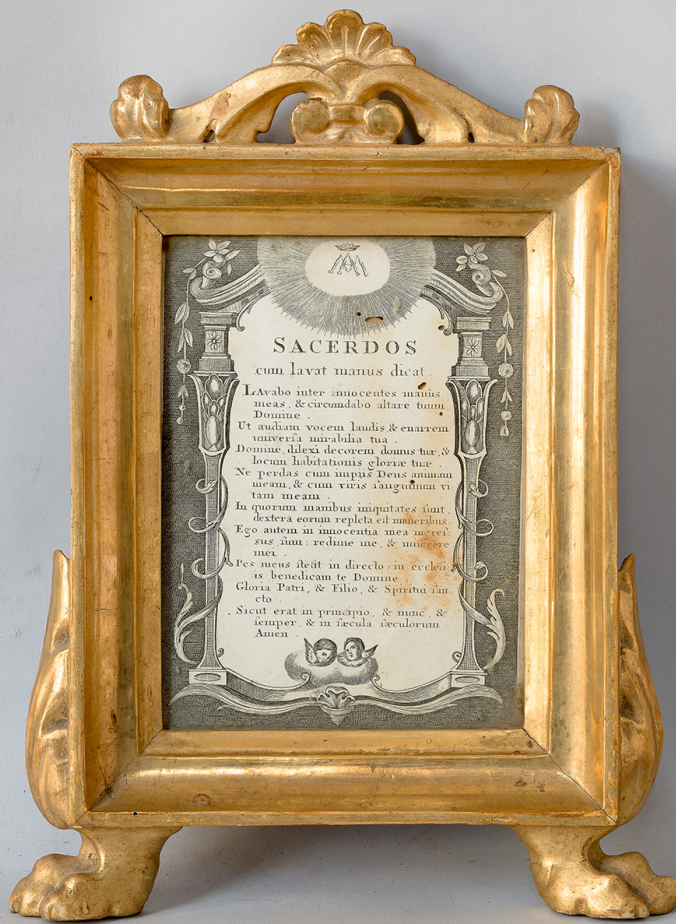 SACERDOS
cum lavat manus dicat.
LAvabo inter innocentes manus
meas, & circumdabo altare tuum
Domine.
Ut audiam vocem laudis, & enarrem
universa mirabilia tua.
Domine, dilexi decorem domus tuæ, &
locum habitationis gloriæ tuæ.
Ne perdas cum impiis Deus animam
meam, & cum viris sanguinum vi
tam meam.
In quorum manibus iniquitates sunt,
dextera eorum repleta est muneribus.
Ego autem in innocentia mea ingres
sus sum: redime me, & miserere
mei.
Pes meus stetit in directo: in ecclesi
is benedicam te Domine
Gloria Patri, & Filio, & Spiritui san
cto.
Sicut erat in principio, & nunc, &
semper, & in sæcula sæculorum
Amen.